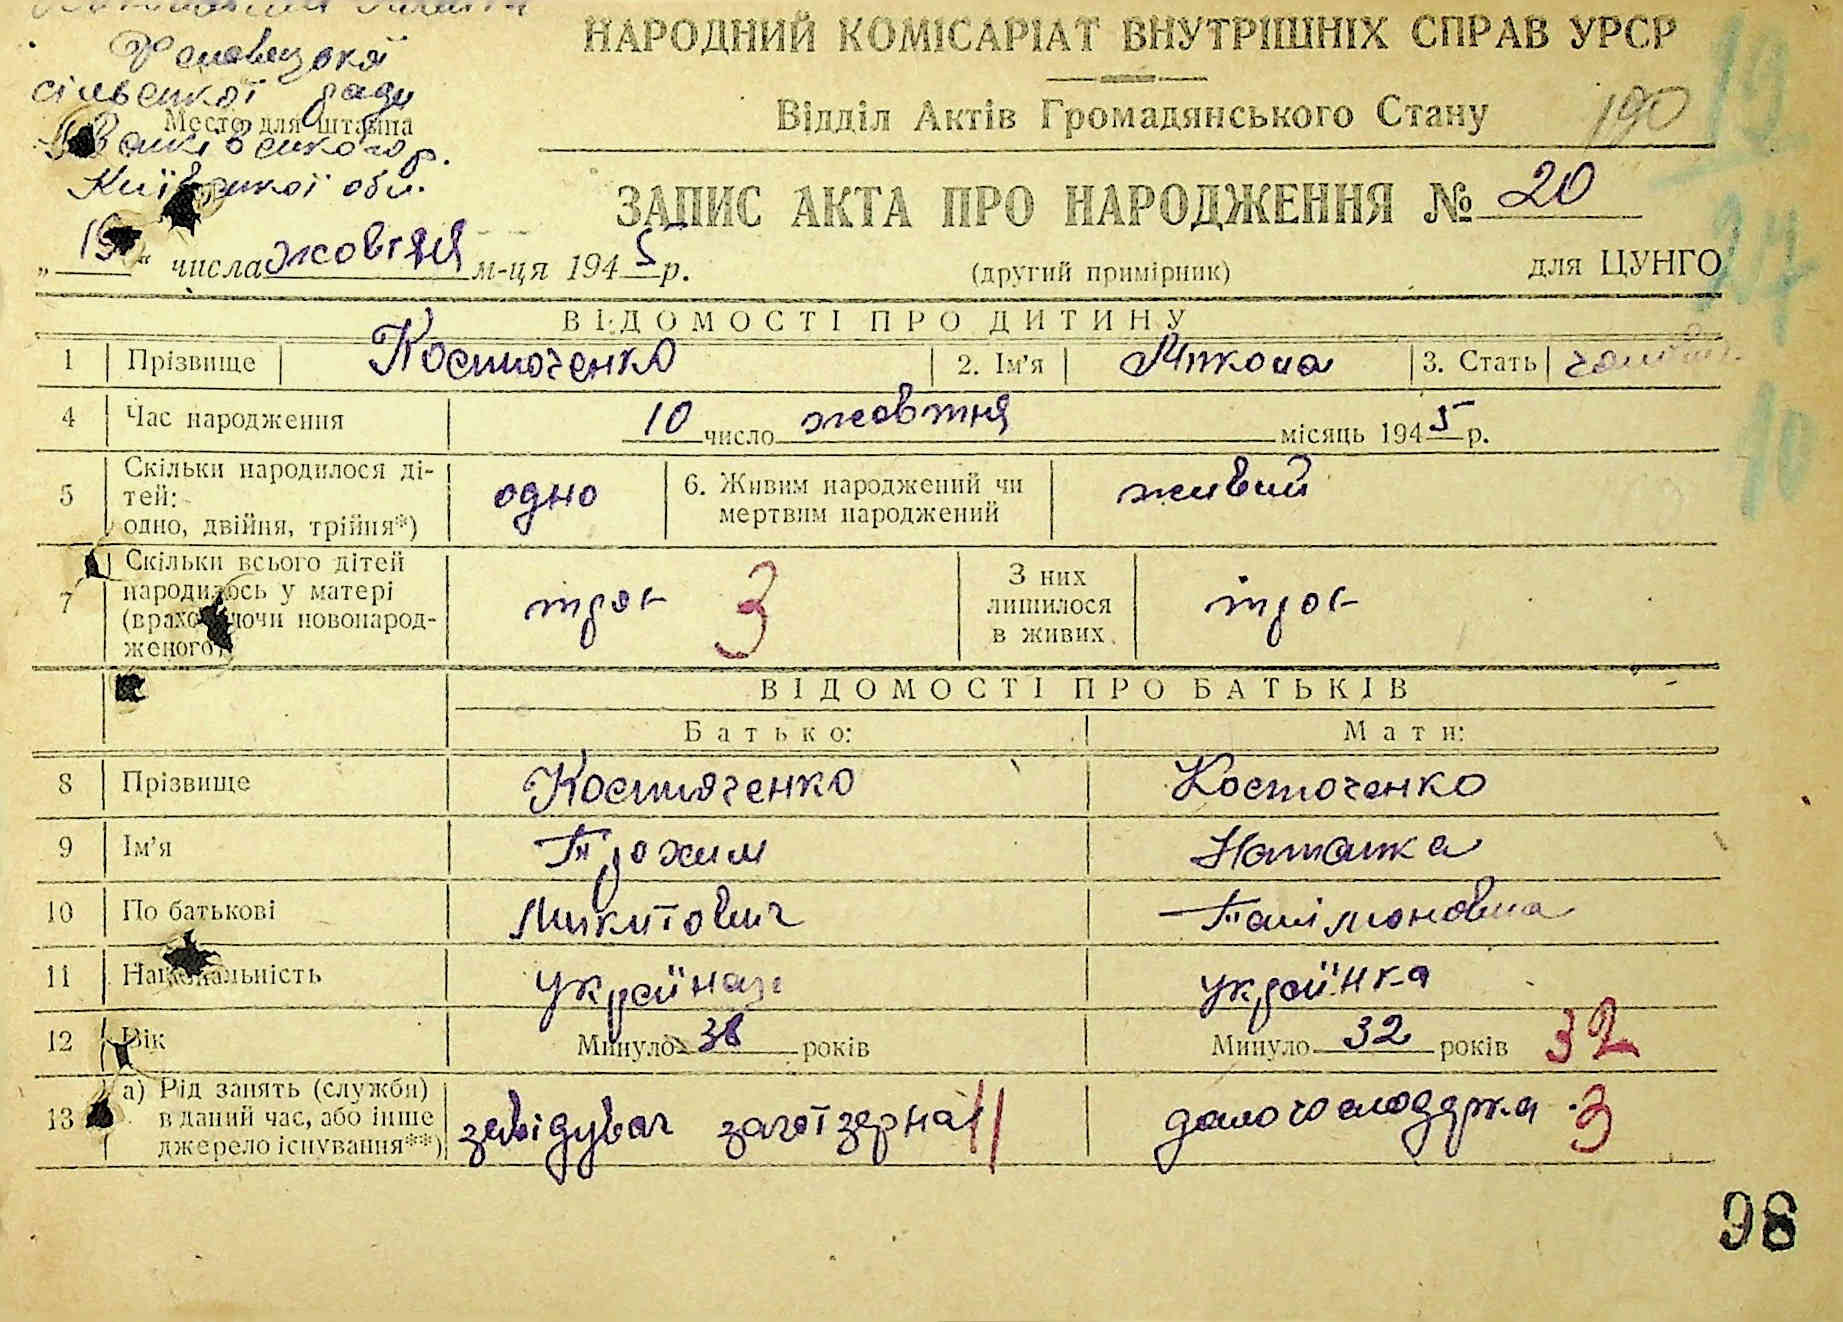 сільської ради
Место для штампа
Іванківського р.
Київської обл.
НАРОДНИЙ КОМІСАРІАТ ВНУТРІШНІХ СПРАВ УРСР
Відділ Актів Громадянського Стану
190
ЗАПИС АКТА ПРО НАРОДЖЕННЯ № 20
„ 15 “ числа жовтня м-ця 1945 р.
(другий примірник)
для ЦУНГО
ВІДОМОСТІ ПРО ДИТИНУ
1 Прізвище Костюченко 2. Ім'я Микола 3. Стать
4 Час народження 10 число жовтня місяць 1945 р.
5 Скільки народилося ді-
тей:
одно, двійня, трійня*) одно 6. Живим народжений чи
мертвим народжений живий
7 Скільки всього дітей
народилось у матері
(враховуючи новонарод-
женого) троє 3 З них
лишилося
в живих троє
ВІДОМОСТІ ПРО БАТЬКІВ
Батько: Мати:
8 Прізвище Костюченко Костюченко
9 Ім'я Трохим Наталка
10 По батькові Микитович
11 Національність українец українка
12 Вік Минуло 38 років Минуло 32 років 32
13 а) Рід занять (служби)
в даний час, або інше
джерело існування**) завідувач заготзерна 11 домогосподарка 3
98